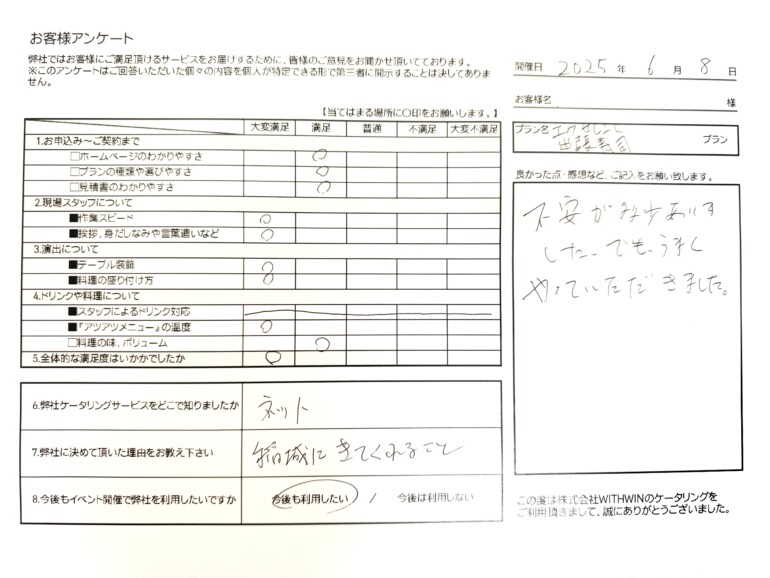 お客様アンケート
弊社ではお客様にご満足頂けるサービスをお届けするために、皆様のご意見をお聞かせ頂いてております。
※このアンケートはご回答いただいた個々の内容を個人が特定できる形で第三者に開示することは決してありません。
開催日 2025 年 6 月 8 日
お客様名 様
プラン名 エクセレント
出張寿司 プラン
【当てはまる場所に〇印をお願いします。】
大変満足 満足 普通 不満足 大変不満足
1.お申込み～ご契約まで
□ホームページのわかりやすさ ○
□プランの種類や選びやすさ ○
□見積書のわかりやすさ ○
2.現場スタッフについて
■作業スピード ○
■挨拶、身だしなみや言葉遣いなど ○
3.演出について
■テーブル装飾 ○
■料理の盛り付け方 ○
4.ドリンクや料理について
■スタッフによるドリンク対応
■『アツアツメニュー』の温度 ○
□料理の味、ボリューム ○
5.全体的な満足度はいかかでしたか ○
6.弊社ケータリングサービスをどこで知りましたか ネット
7.弊社に決めて頂いた理由をお教え下さい 稲城にきてくれること
8.今後もイベント開催で弊社を利用したいですか 今後も利用したい / 今後は利用しない
良かった点・感想など、ご記入をお願い致します。
不安が
した。でも、うまく
やっていただきました。
この度は株式会社WITHWINのケータリングを
ご利用頂きまして、誠にありがとうございました。